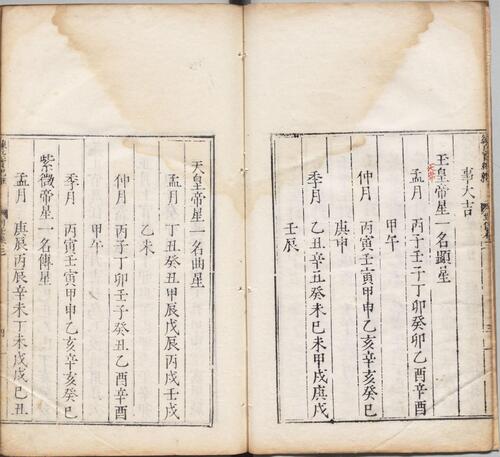 事大吉
玉皇帝星一名顯星
孟月 丙子壬子丁卯癸卯乙酉辛酉
甲午
仲月 丙寅壬寅甲申乙亥辛亥癸巳
庚申
季月 乙丑辛丑癸未己未甲戌庚戌
壬辰
天皇帝星一名曲星
孟月 丁丑癸丑甲辰戊辰丙戌壬戌
乙未
仲月 丙子丁卯壬子癸丑乙酉辛酉
甲午
季月 丙寅壬寅甲申乙亥辛亥癸巳
紫微帝星一名傅星
孟月 庚辰丙辰辛未丁未戊戌己丑